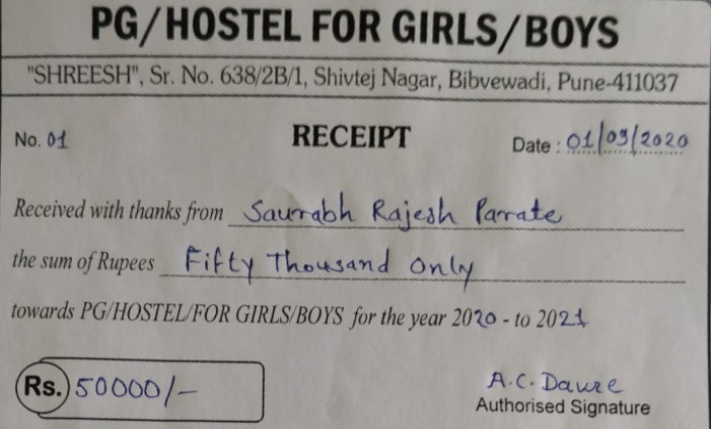 PG/HOSTEL FOR GIRLS/BOYS
"SHREESH", Sr. No. 638/2B/1, Shivtej Nagar, Bibvewadi, Pune-411037
No. 01 RECEIPT Date : 01/09/2020
Received with thanks from Saurabh Rajesh Parate
the sum of Rupees Fifty Thousand Only
towards PG/HOSTEL/FOR GIRLS/BOYS for the year 2020 - to 2021
Rs. 50000/- A.C. Daure
Authorised Signature